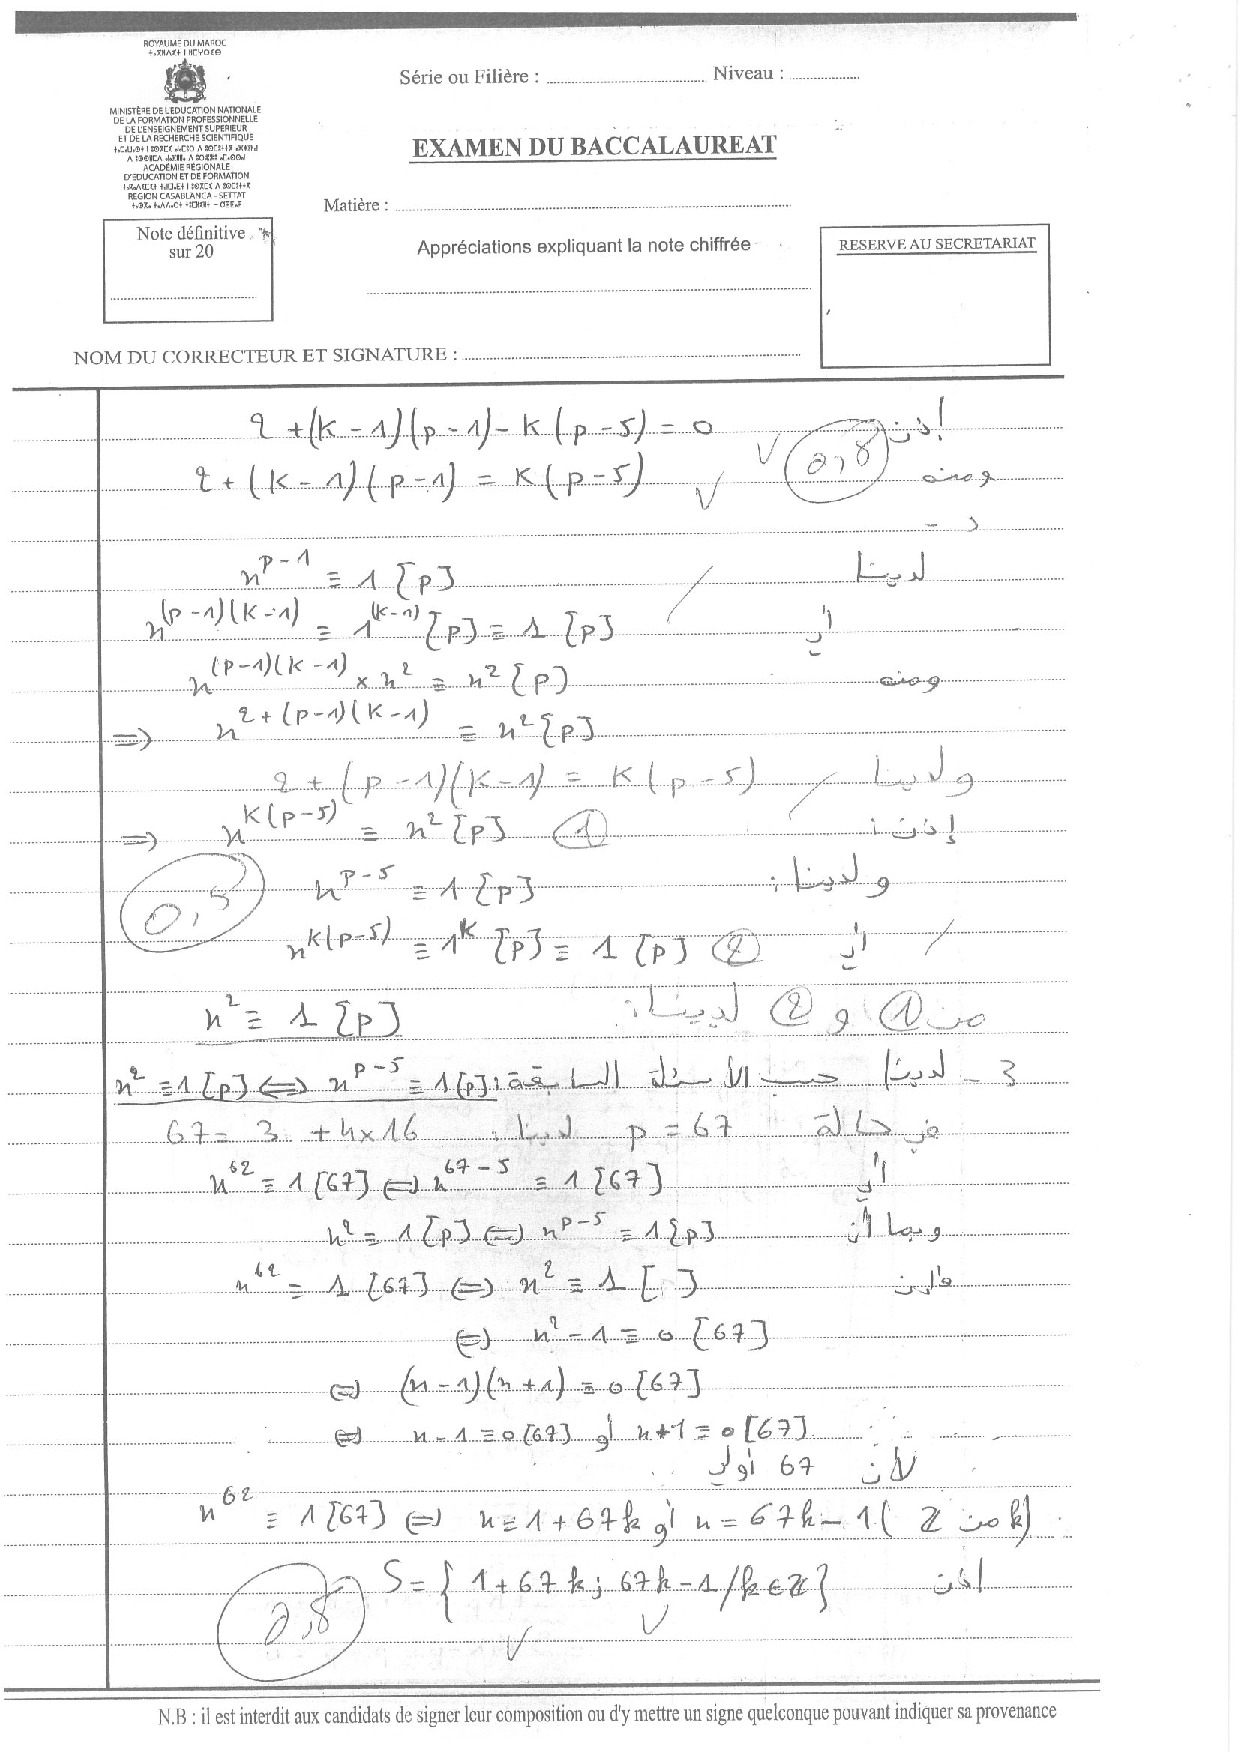 ROYAUME DU MAROC
MINISTÈRE DE L'EDUCATION NATIONALE
DE LA FORMATION PROFESSIONNELLE
DE L'ENSEIGNEMENT SUPERIEUR
ET DE LA RECHERCHE SCIENTIFIQUE
ACADÉMIE RÉGIONALE
D'EDUCATION ET DE FORMATION
REGION CASABLANCA - SETTAT
Série ou Filière : Niveau :
EXAMEN DU BACCALAUREAT
Matière :
Note définitive
sur 20
Appréciations expliquant la note chiffrée
RESERVE AU SECRETARIAT
NOM DU CORRECTEUR ET SIGNATURE :
إذن 2 + (k - 1)(p - 1) - k(p - 5) = 0
ومنه 2 + (k - 1)(p - 1) = k(p - 5)
0,8
د -
لدينا n^{p-1} ≡ 1 [p]
أي n^{(p-1)(k-1)} ≡ 1^{(k-1)} [p] ≡ 1 [p]
ومنه n^{(p-1)(k-1)} × n^2 ≡ n^2 [p]
=> n^{2+(p-1)(k-1)} ≡ n^2 [p]
ولدينا 2 + (p - 1)(k - 1) = k(p - 5)
إذن : => n^{k(p-5)} ≡ n^2 [p] ①
ولدينا : n^{p-5} ≡ 1 [p]
0,5
أي n^{k(p-5)} ≡ 1^k [p] ≡ 1 [p] ②
من ① و ② لدينا : n^2 ≡ 1 [p]
3 - لدينا حسب الأسئلة السابقة : n^2 ≡ 1 [p] <=> n^{p-5} ≡ 1 [p]
في حالة p = 67 لدينا : 67 = 3 + 4×16
أي n^{62} ≡ 1 [67] <=> n^{67-5} ≡ 1 [67]
وبما أن n^2 ≡ 1 [p] <=> n^{p-5} ≡ 1 [p]
فإن n^{62} ≡ 1 [67] <=> n^2 ≡ 1 [ ]
<=> n^2 - 1 ≡ 0 [67]
<=> (n - 1)(n + 1) ≡ 0 [67]
<=> n - 1 ≡ 0 [67] أو n + 1 ≡ 0 [67]
لأن 67 أولي
n^{62} ≡ 1 [67] <=> n = 1 + 67k أو n = 67k - 1 (k من Z)
إذن S = { 1 + 67k ; 67k - 1 / k ∈ Z }
0,8
N.B : il est interdit aux candidats de signer leur composition ou d'y mettre un signe quelconque pouvant indiquer sa provenance